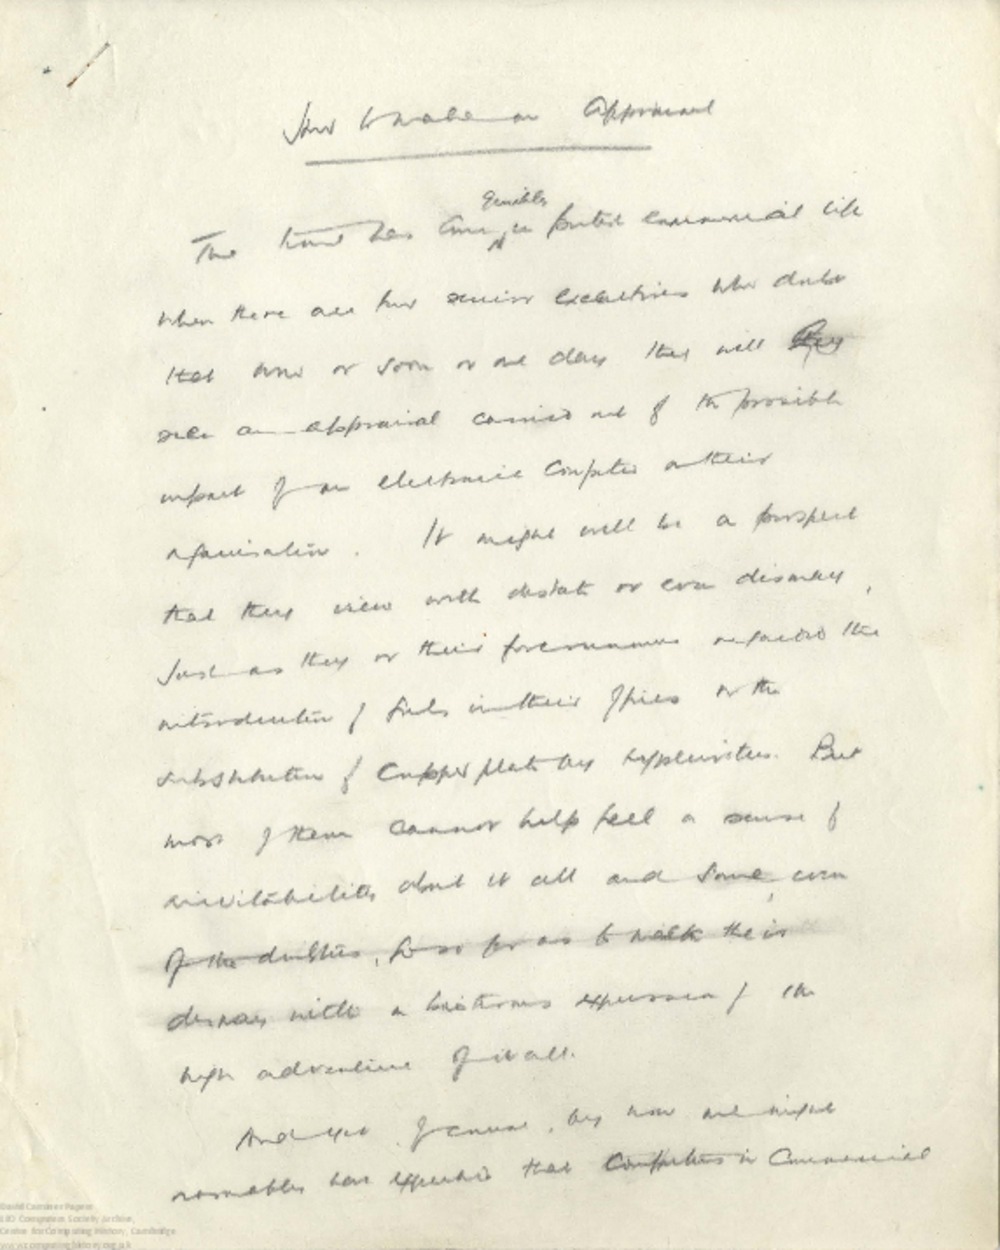 How to make an Appraisal
Possibly
The time has come in British commercial life
when there are few senior executives who doubt
that now or soon or one day they will
see an appraisal carried out of the possible
impact of an electronic computer on their
organisation. It might well be a prospect
that they view with distaste or even dismay,
Just as they or their forerunners regarded the
introduction of girls in their offices or the
substitution of Copper plate by typewriters. But
most of them cannot help feel a sense of
inevitability about it all and some, even
of the doubters, go so far as to mask their
dismay with a boisterous expression of the
high adventure of it all.
And yet, of course, by now one might
reasonably have expected that Computers in Commercial
David Caminer Papers
LEO Computers Society Archive,
Centre for Computing History, Cambridge
www.computinghistory.org.uk